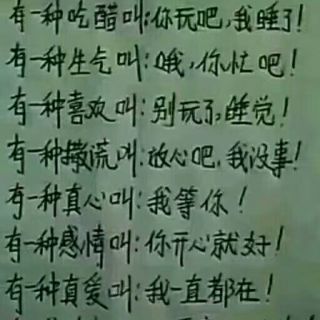 有一种吃醋叫:你玩吧,我睡了!
有一种生气叫:哦,你忙吧!
有一种喜欢叫:别玩了,睡觉!
有一种撒谎叫:放心吧,我没事!
有一种真心叫:我等你!
有一种感情叫:你开心就好!
有一种真爱叫:我一直都在!